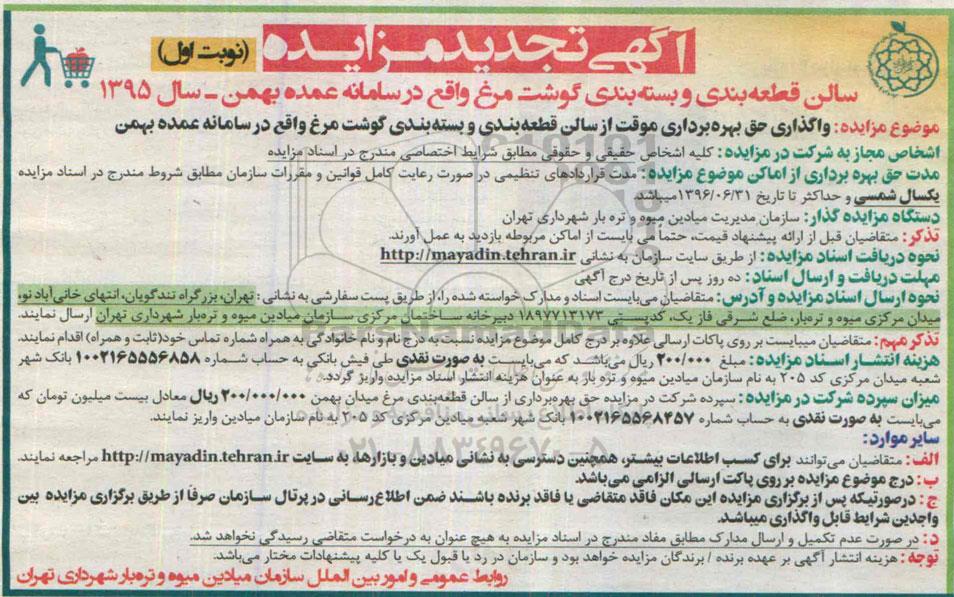 آگهی تجدید مزایده (نوبت اول)
سالن قطعه‌بندی و بسته‌بندی گوشت مرغ واقع در سامانه عمده بهمن ـ سال ۱۳۹۵
موضوع مزایده: واگذاری حق بهره‌برداری موقت از سالن قطعه‌بندی و بسته‌بندی گوشت مرغ واقع در سامانه عمده بهمن
اشخاص مجاز به شرکت در مزایده: کلیه اشخاص حقیقی و حقوقی مطابق شرایط اختصاصی مندرج در اسناد مزایده
مدت حق بهره برداری از اماکن موضوع مزایده: مدت قراردادهای تنظیمی در صورت رعایت کامل قوانین و مقررات سازمان مطابق شروط مندرج در اسناد مزایده
یکسال شمسی و حداکثر تا تاریخ ۱۳۹۶/۰۶/۳۱ میباشد.
دستگاه مزایده گذار: سازمان مدیریت میادین میوه و تره بار شهرداری تهران
تذکر: متقاضیان قبل از ارائه پیشنهاد قیمت، حتماً می بایست از اماکن مربوطه بازدید به عمل آورند.
نحوه دریافت اسناد مزایده: از طریق سایت سازمان به نشانی http://mayadin.tehran.ir
مهلت دریافت و ارسال اسناد: ده روز پس از تاریخ درج آگهی
نحوه ارسال اسناد مزایده و آدرس: متقاضیان می‌بایست اسناد و مدارک خواسته شده را، از طریق پست سفارشی به نشانی: تهران، بزرگراه تندگویان، انتهای خانی‌آباد نو،
میدان مرکزی میوه و تره‌بار، ضلع شرقی فاز یک، کدپستی ۱۸۹۷۷۱۳۱۷۳ دبیرخانه ساختمان مرکزی سازمان میادین میوه و تره‌بار شهرداری تهران ارسال نمایند.
تذکر مهم: متقاضیان میبایست بر روی پاکات ارسالی علاوه بر درج کامل موضوع مزایده نسبت به درج نام و نام خانوادگی به همراه شماره تماس خود(ثابت و همراه) اقدام نمایند.
هزینه انتشار اسناد مزایده: مبلغ ۲۰۰/۰۰۰ ریال می‌باشد که می‌بایست به صورت نقدی طی فیش بانکی به حساب شماره ۱۰۰۲۱۶۵۵۵۶۸۵۸ بانک شهر
شعبه میدان مرکزی کد ۲۰۵ به نام سازمان میادین میوه و تره بار به عنوان هزینه انتشار اسناد مزایده واریز گردد.
میزان سپرده شرکت در مزایده: سپرده شرکت در مزایده حق بهره‌برداری از سالن قطعه‌بندی مرغ میدان بهمن ۲۰۰/۰۰۰/۰۰۰ ریال معادل بیست میلیون تومان که
می‌بایست به صورت نقدی به حساب شماره ۱۰۰۲۱۶۵۵۶۸۴۵۷ بانک شهر شعبه میادین مرکزی کد ۲۰۵ به نام سازمان میادین واریز نمایند.
سایر موارد:
الف: متقاضیان می‌توانند برای کسب اطلاعات بیشتر، همچنین دسترسی به نشانی میادین و بازارها، به سایت http://mayadin.tehran.ir مراجعه نمایند.
ب: درج موضوع مزایده بر روی پاکت ارسالی الزامی می‌باشد.
ج: درصورتیکه پس از برگزاری مزایده این مکان فاقد متقاضی یا فاقد برنده باشند ضمن اطلاع‌رسانی در پرتال سازمان صرفاً از طریق برگزاری مزایده بین
واجدین شرایط قابل واگذاری میباشد.
د: در صورت عدم تکمیل و ارسال مدارک مطابق مفاد مندرج در اسناد مزایده به هیچ عنوان به درخواست متقاضی رسیدگی نخواهد شد.
توجه: هزینه انتشار آگهی بر عهده برنده / برندگان مزایده خواهد بود و سازمان در رد یا قبول یک یا کلیه پیشنهادات مختار می‌باشد.
روابط عمومی و امور بین الملل سازمان میادین میوه و تره‌بار شهرداری تهران